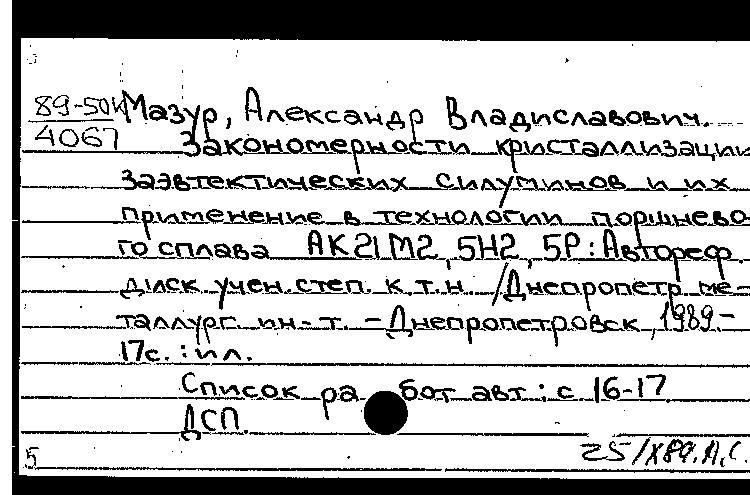 89-50к Мазур, Александр Владиславович.
4067 Закономерности кристаллизации
заэвтектических силуминов и их
применение в технологии поршнево-
го сплава АК21М2,5Н2,5Р: Автореф
дис.к. учен. степ. к.т.н. /Днепропетр ме-
таллург. ин-т. - Днепропетровск, 1989-
17с.: ил.
Список работ авт: с 16-17
ДСП.
5 25/X89.А.С.